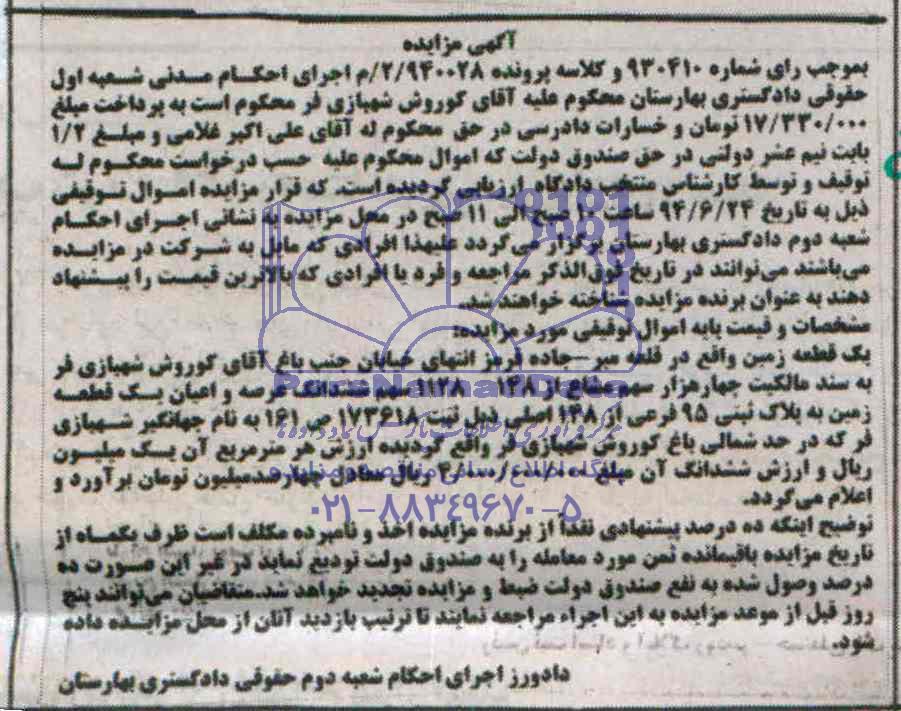 آگهی مزایده
بموجب رای شماره ۹۳۰۴۱۰ و کلاسه پرونده ۲/۹۴۰۰۲۸/م اجرای احکام مدنی شعبه اول
حقوقی دادگستری بهارستان محکوم علیه آقای کوروش شهبازی فر محکوم است به پرداخت مبلغ
۱۷/۳۳۰/۰۰۰تومان و خسارات دادرسی در حق محکوم له آقای علی اکبر غلامی و مبلغ ۱/۲
بابت نیم عشر دولتی در حق صندوق دولت که اموال محکوم علیه حسب درخواست محکوم له
توقیف و توسط کارشناس منتخب دادگاه ارزیابی گردیده است. که قرار مزایده اموال توقیفی
ذیل به تاریخ ۹۴/۶/۲۴ ساعت ۱۰ صبح الی ۱۱ صبح در محل مزایده به نشانی اجرای احکام
شعبه دوم دادگستری بهارستان برگزار می‌گردد علیهذا افرادی که مایل به شرکت در مزایده
می‌باشند می‌توانند در تاریخ فوق‌الذکر مراجعه و فرد یا افرادی که بالاترین قیمت را پیشنهاد
دهند به عنوان برنده مزایده شناخته خواهند شد.
مشخصات و قیمت پایه اموال توقیفی مورد مزایده:
یک قطعه زمین واقع در قلعه میر-جاده فریز انتهای خیابان جنب باغ آقای کوروش شهبازی فر
به سند مالکیت چهارهزار سهم مشاع از ۱۴۸ ۱۱۲۸ سهم ششدانگ عرصه و اعیان یک قطعه
زمین به پلاک ثبتی ۹۵ فرعی از ۱۴۸ اصلی ذیل ثبت ۱۷۳۶۱۸ ص ۱۶۱ به نام جهانگیر شهبازی
فر که در حد شمالی باغ کوروش شهبازی فر واقع گردیده ارزش هر مترمربع آن یک میلیون
ریال و ارزش ششدانگ آن مبلغ ریال معادل چهارصدمیلیون تومان برآورد و
اعلام می‌گردد.
توضیح اینکه ده درصد پیشنهادی نقداً از برنده مزایده اخذ و نامبرده مکلف است ظرف یکماه از
تاریخ مزایده باقیمانده ثمن مورد معامله را به صندوق دولت تودیع نماید در غیر این صورت ده
درصد وصول شده به نفع صندوق دولت ضبط و مزایده تجدید خواهد شد.متقاضیان می‌توانند پنج
روز قبل از موعد مزایده به این اجراء مراجعه نمایند تا ترتیب بازدید آنان از محل مزایده داده
شود.
دادورز اجرای احکام شعبه دوم حقوقی دادگستری بهارستان
ParsNamadData
۰۲۱-۸۸۳۴۹۶۷۰-۵